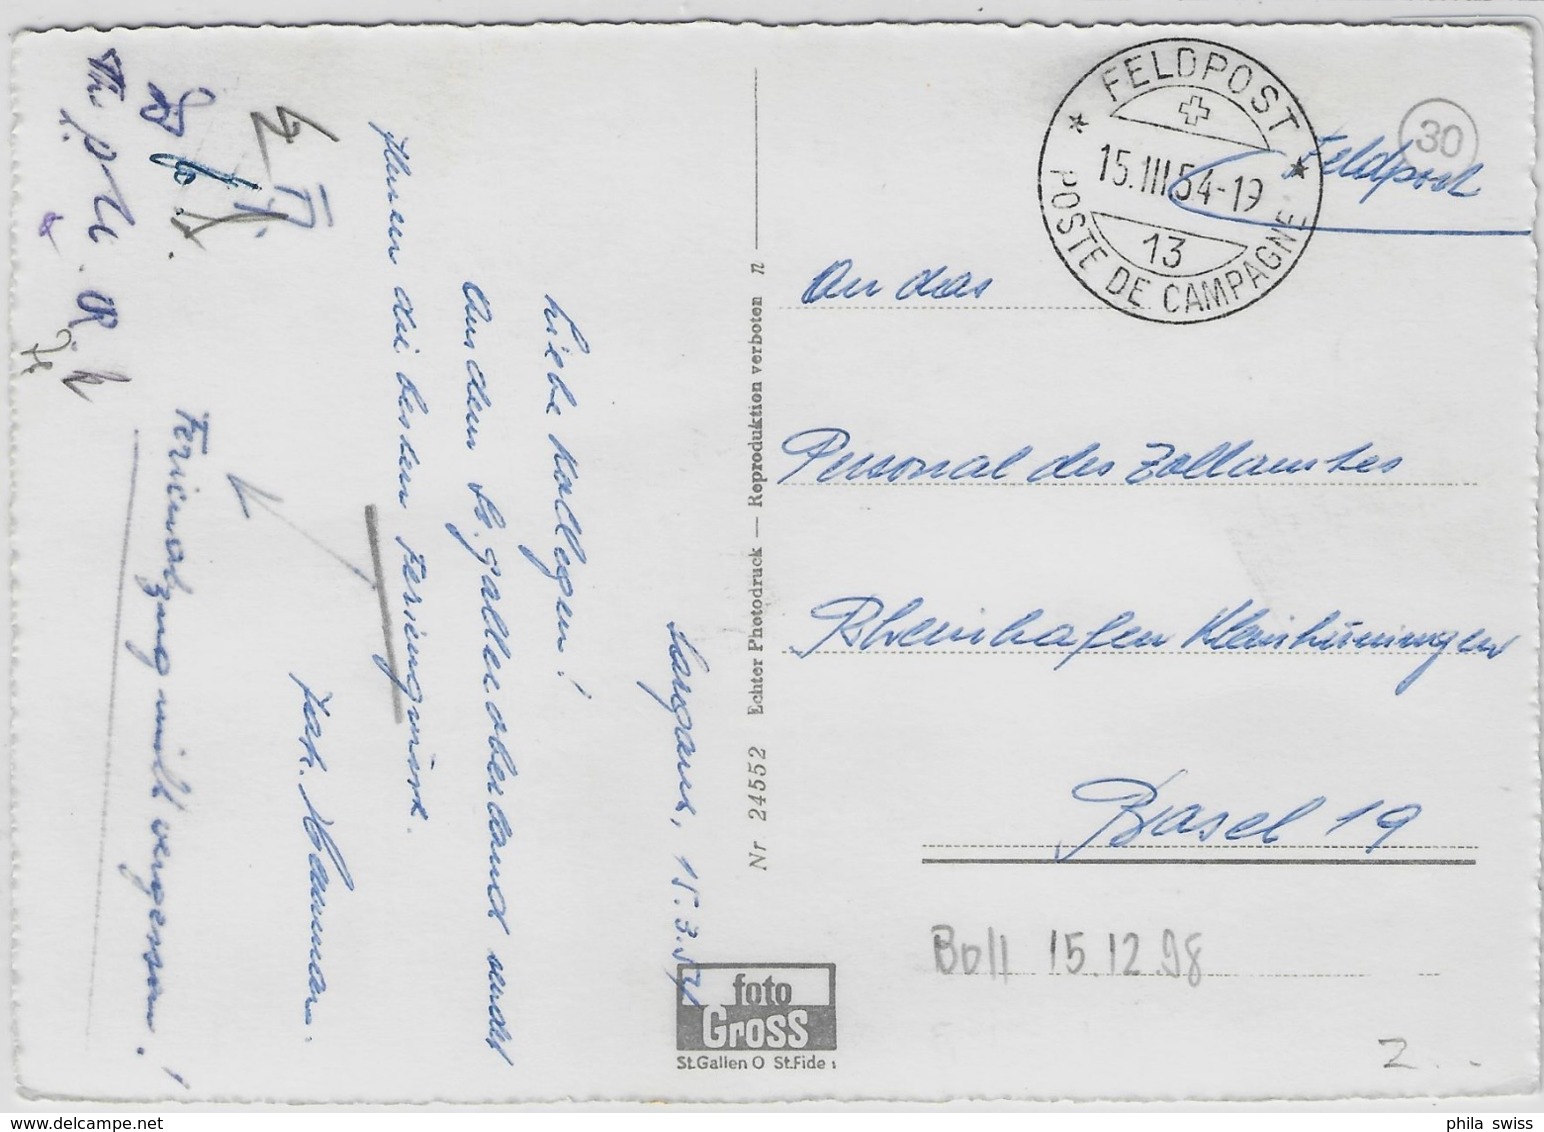 Sargans, 15.3.54
Liebe Kollegen!
Aus dem St. Galleroberland sendet
Ihnen die besten Feriengrüsse.
Joh. Hamman.
Ferienabzug nicht vergessen!
FELDPOST
15.III.54-19
13
POSTE DE CAMPAGNE
30
Feldpost
An das
Personal des Zollamtes
Rheinhafen Kleinhüningen
Basel 19
Boll 15.12.98
Z
Nr 24552 Echter Photodruck — Reproduktion verboten n
foto
Gross
St.Gallen O St.Fide
phila swiss